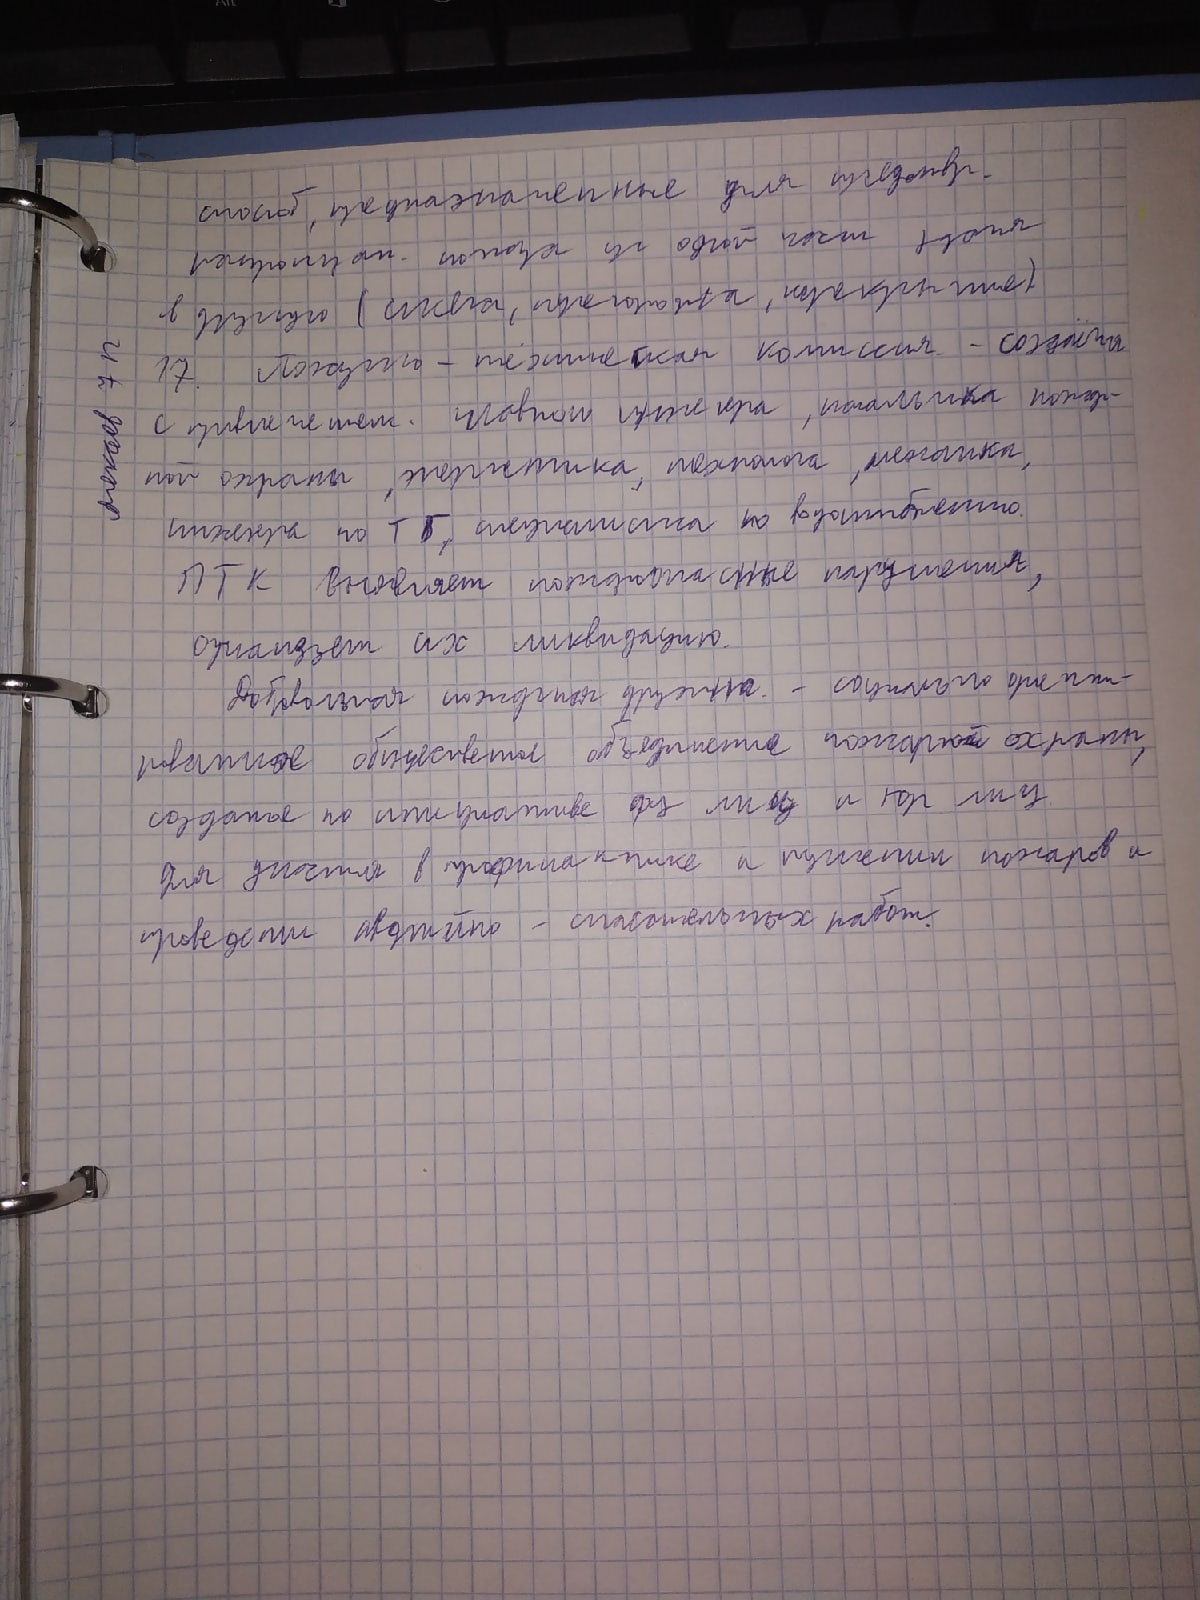 способ, предназначенные для предотвр.
распростран. пожара из одной части здания
в другую (стена, перегородка, перекрытие)
17. Пожарно - техническая комиссия - создаётся
с привлечением. главного инженера, начальника пожар-
ной охраны, энергетика, технолога, механика,
инженера по ТБ, специалиста по водоснабжению.
ПТК выявляет пожароопасные нарушения,
организует их ликвидацию.
Добровольная пожарная дружина. - социально ориенти-
рованное общественное объединение пожарной охраны,
созданое по инициативе физ лиц и юр лиц
для участия в профилактике и тушении пожаров и
проведении аварийно - спасательных работ.